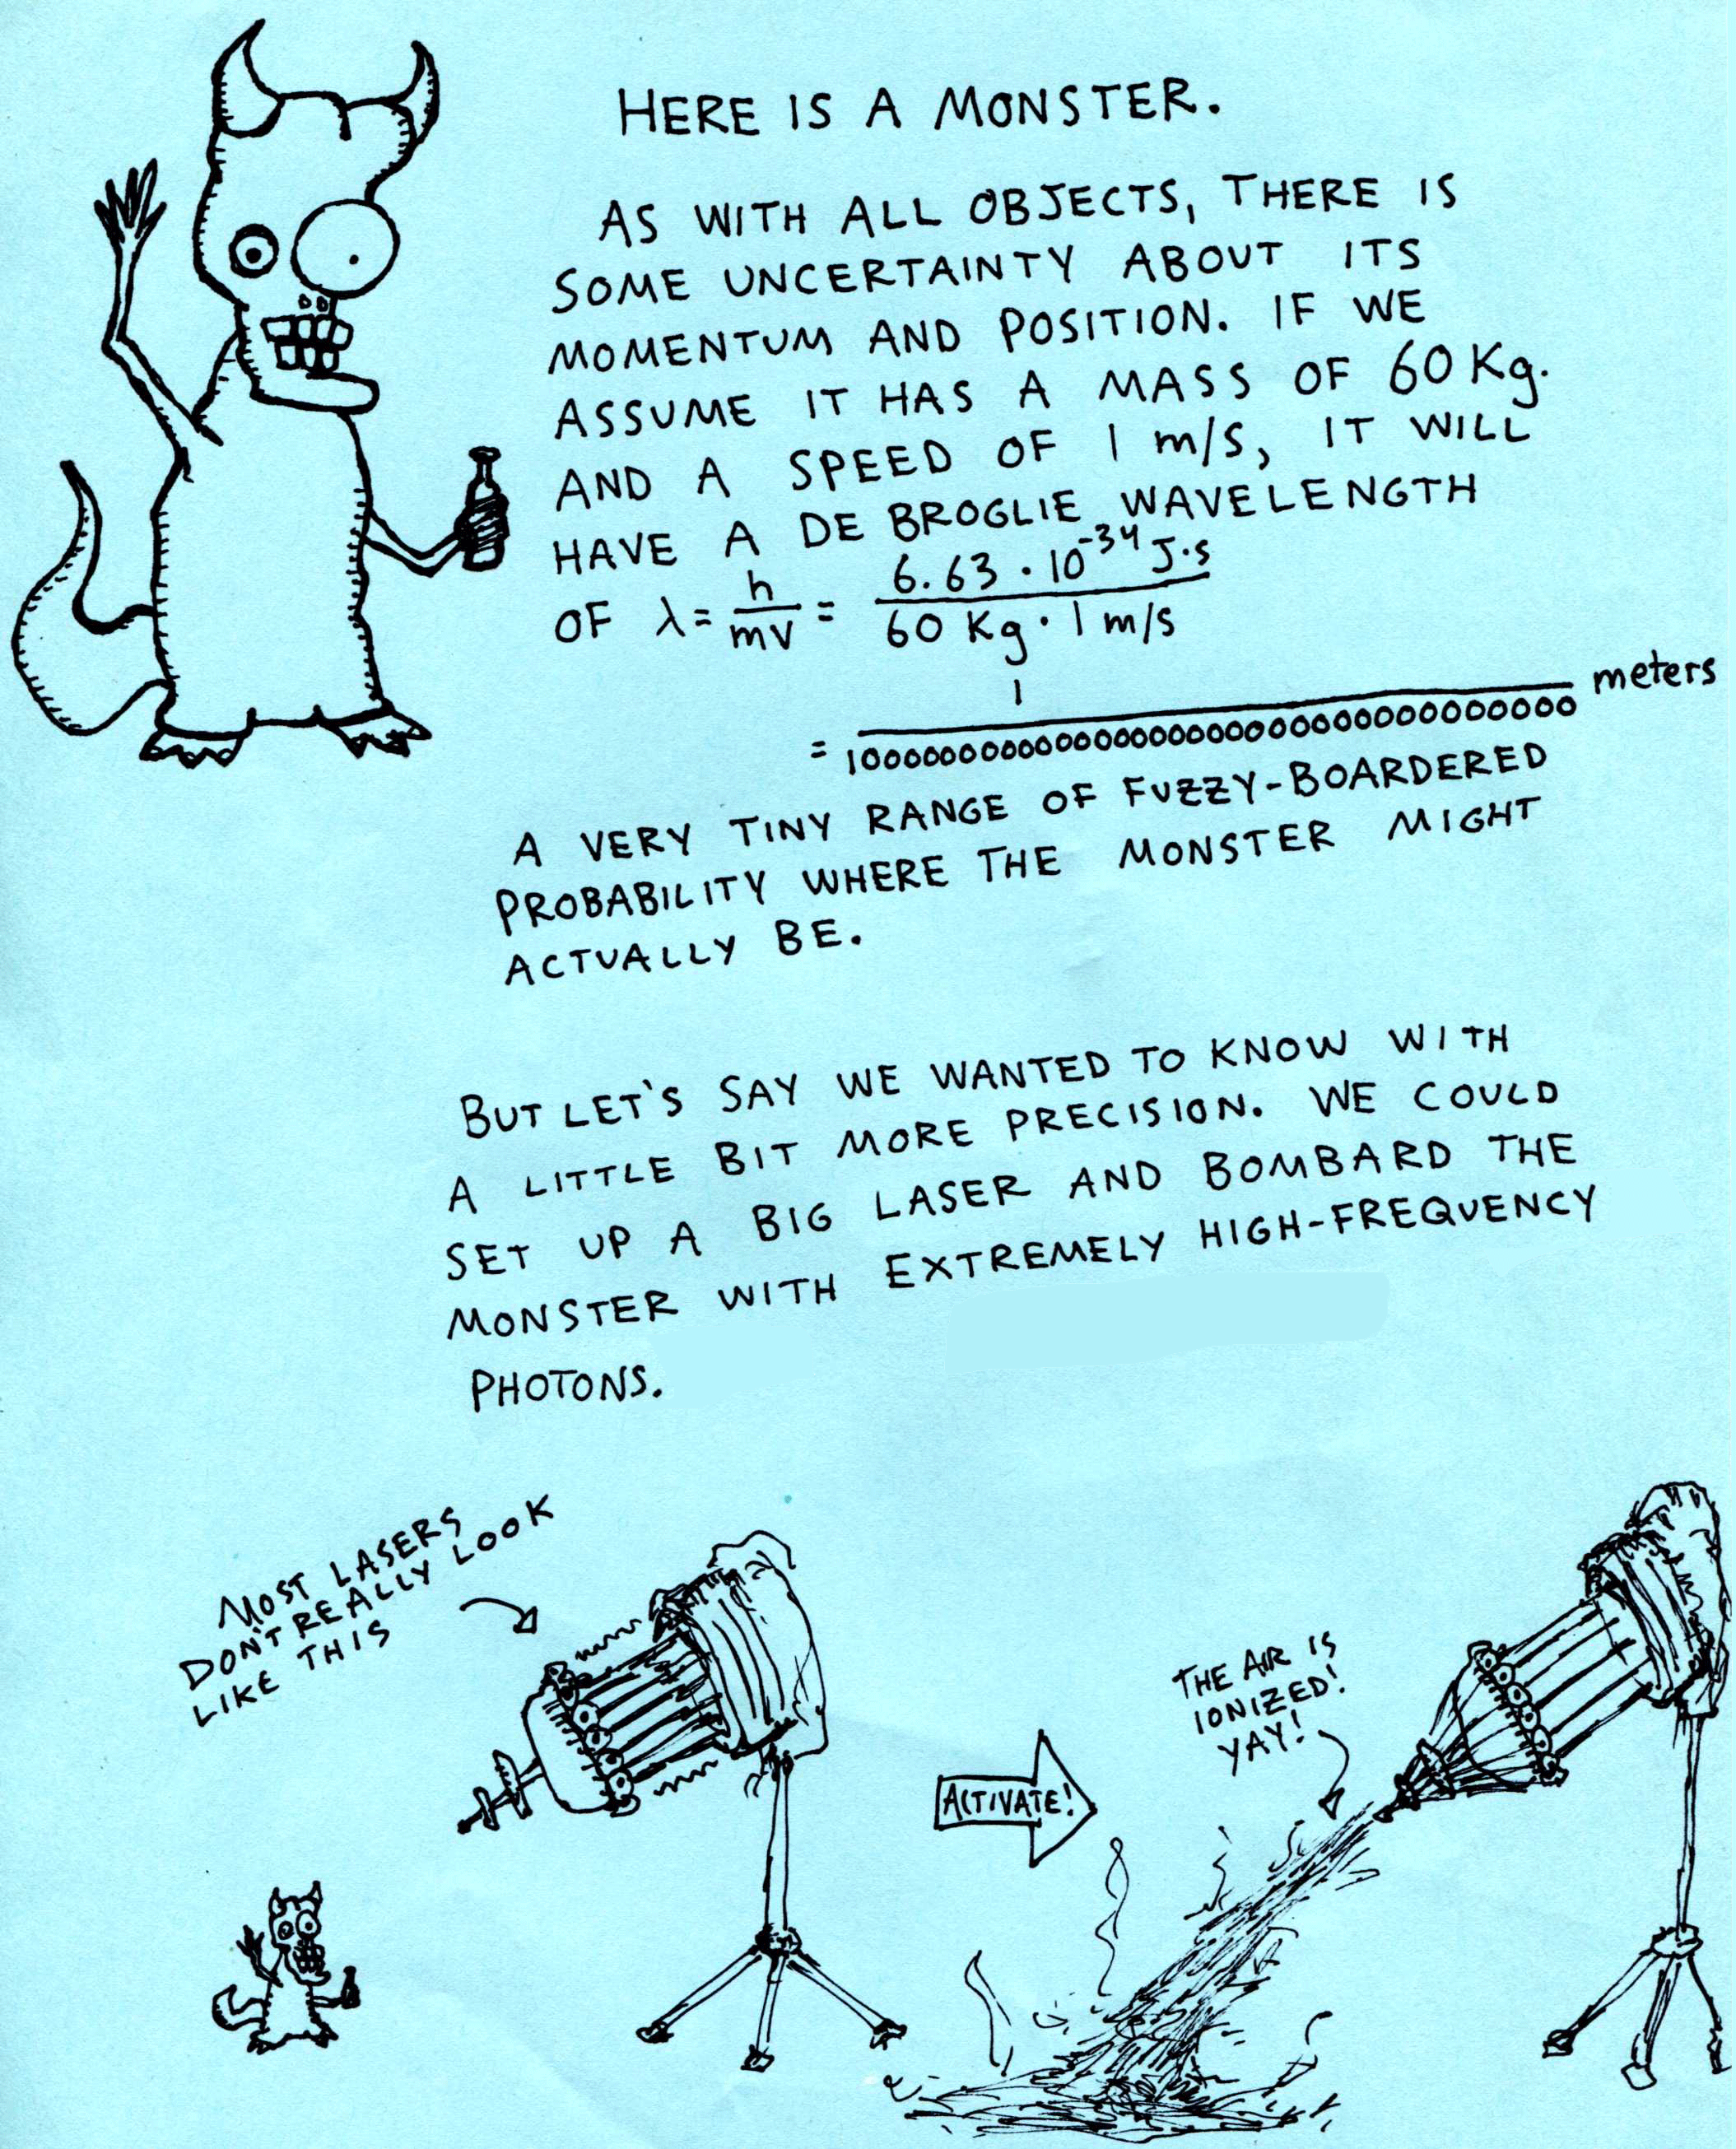 HERE IS A MONSTER.
AS WITH ALL OBJECTS, THERE IS
SOME UNCERTAINTY ABOUT ITS
MOMENTUM AND POSITION. IF WE
ASSUME IT HAS A MASS OF 60 Kg.
AND A SPEED OF 1 m/s, IT WILL
HAVE A DE BROGLIE WAVELENGTH
OF λ = h/mv = 6.63 · 10^-34 J·s / 60 Kg · 1 m/s
= 1/100000000000000000000000000000000000 meters
A VERY TINY RANGE OF FUZZY-BOARDERED
PROBABILITY WHERE THE MONSTER MIGHT
ACTUALLY BE.
BUT LET'S SAY WE WANTED TO KNOW WITH
A LITTLE BIT MORE PRECISION. WE COULD
SET UP A BIG LASER AND BOMBARD THE
MONSTER WITH EXTREMELY HIGH-FREQUENCY
PHOTONS.
MOST LASERS
DON'T REALLY LOOK
LIKE THIS
ACTIVATE!
THE AIR IS
IONIZED!
YAY!